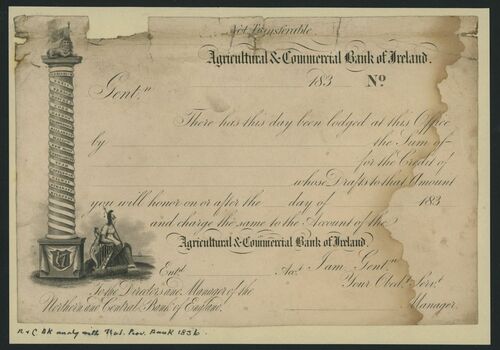 Not Transferable.
Agricultural & Commercial Bank of Ireland.
183 No
Gent.n
There has this day been lodged at this Office
by the Sum of
for the Credit of
whose Drafts to that Amount
you will honor on or after the day of 183
and charge the same to the Account of the
Agricultural & Commercial Bank of Ireland.
I am Gent.n
Ent.d Acc.t Your Obed.t Serv.t
To the Directors and Manager of the
Northern and Central Bank of England. Manager.
1836.